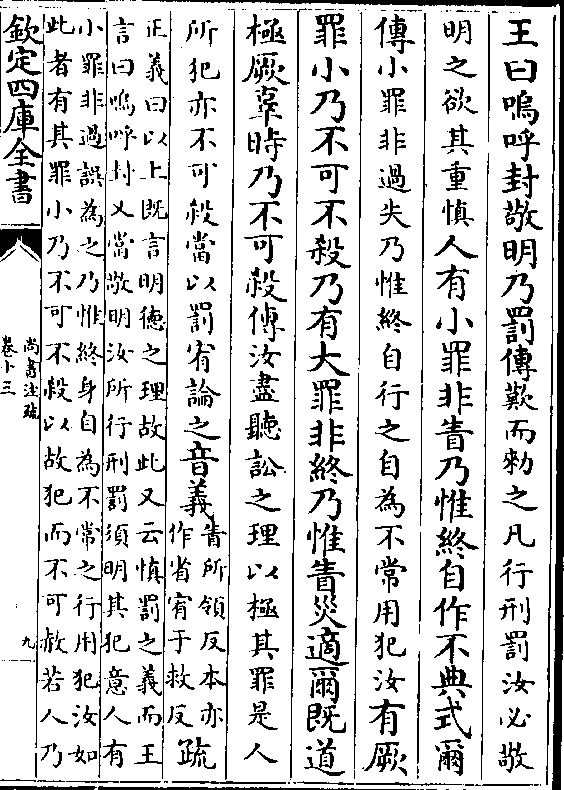 王曰嗚呼封敬明乃罰傳歎而勑之凡行刑罰汝必敬
明之欲其重慎人有小罪非眚乃惟終自作不典式爾
傳小罪非過失乃惟終自行之自為不常用犯汝有厥
罪小乃不可不殺乃有大罪非終乃惟眚災適爾既道
極厥辜時乃不可殺傳汝盡聽訟之理以極其罪是人
所犯亦不可殺當以罰宥論之音義眚所領反本亦
作省宥于救反疏
正義曰以上既言明德之理故此又云慎罰之義而王
言曰嗚呼封又當敬明汝所行刑罰須明其犯意人有
小罪非過誤為之乃惟終身自為不常之行用犯汝如
此者有其罪小乃不可不殺以故犯而不可赦若人乃
欽定四庫全書
尚書注疏
卷十三
九